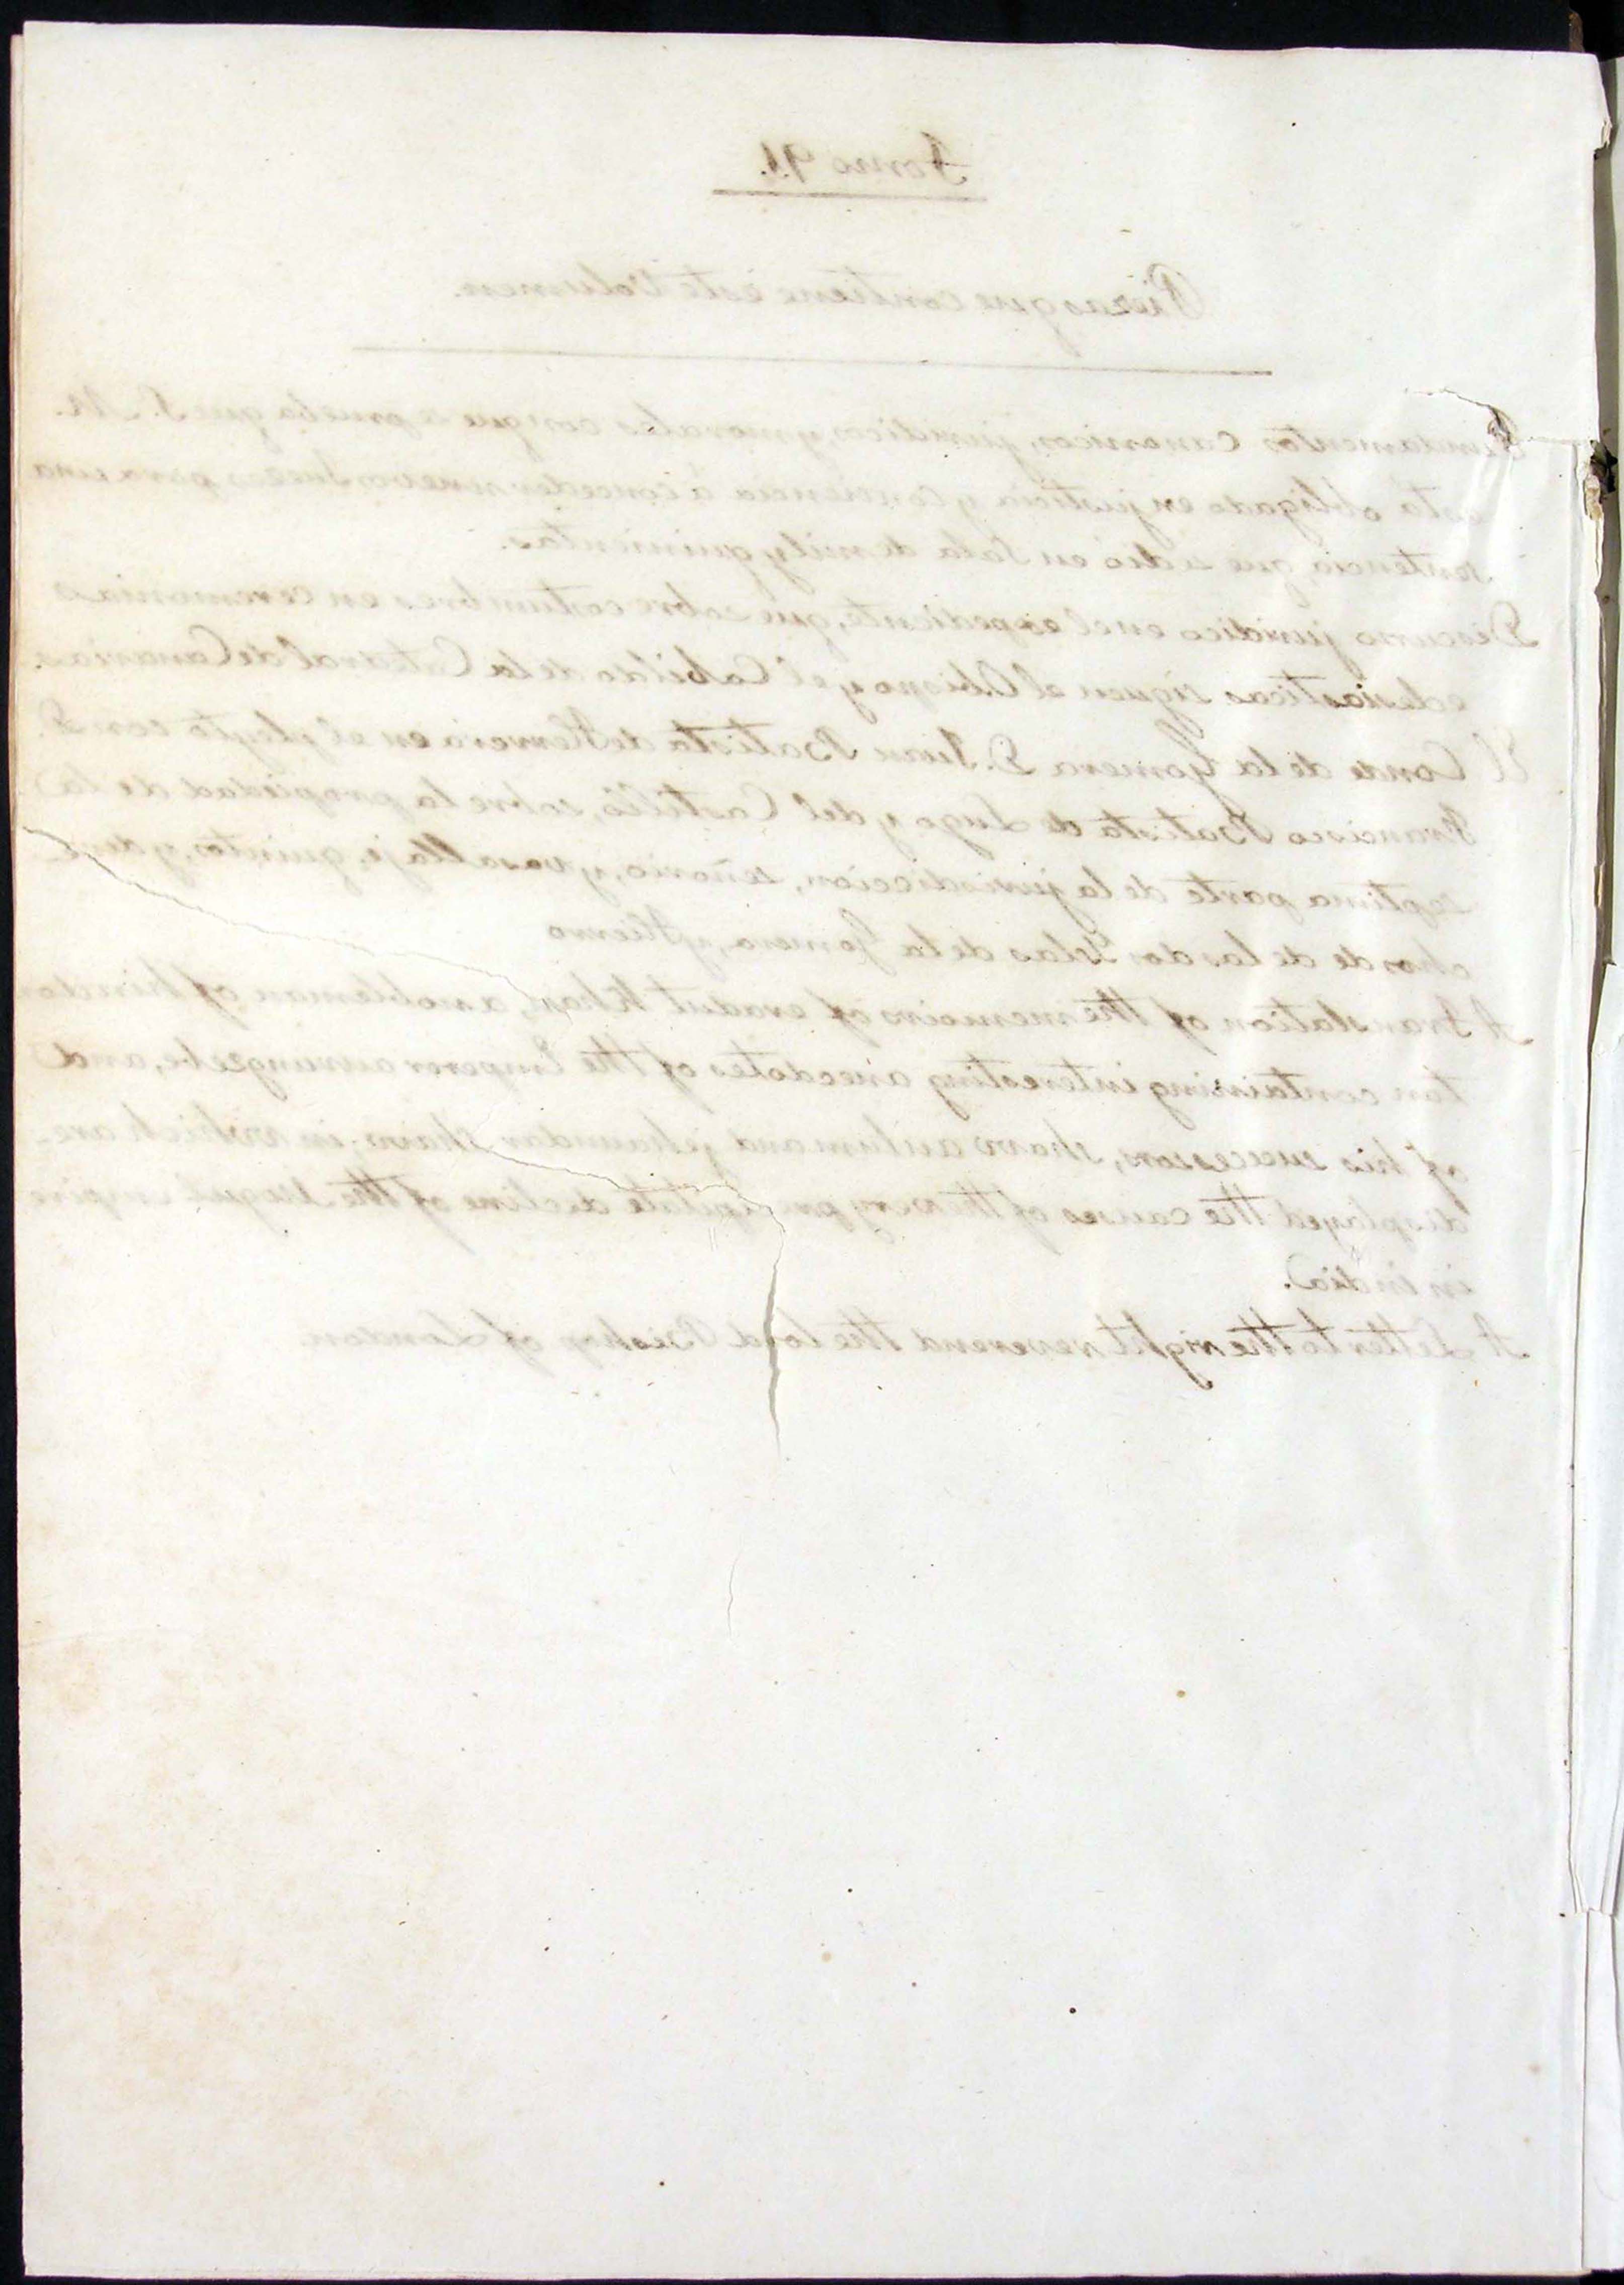 Tomo 94.
Piezas que contiene este Volumen.
Fundamentos canonicos, juridicos, y morales con que se prueba que S. M.
está obligado en justicia y conciencia á conceder nuevos Jueces para una
sentencia, que se dió en Sala de mil y quinientas.
Discurso juridico en el espediente, que sobre costumbres en ceremonias
eclesiasticas siguen el Obispo y el Cabildo de la Catedral de Canarias.
El Conde de la Gomera D. Juan Batista de Herrera en el pleyto con D.
Francisco Batista de Lugo y del Castillo, sobre la propiedad de la
septima parte de la jurisdiccion, señorio, y vasallaje, quintos, y dere-
chos de las dos Yslas de la Gomera, y Hierro
A translation of the memoirs of eradut Khan, a nobleman of hindos
tan containing interesting anecdotes of the Emperor aurungzebe, and
of his successors, shaw aulum and jehaundar shaw; in which are
displayed the causes of the very precipitate decline of the Mogul empire
in india.
A Letter to the right reverend the lord Bishop of London.